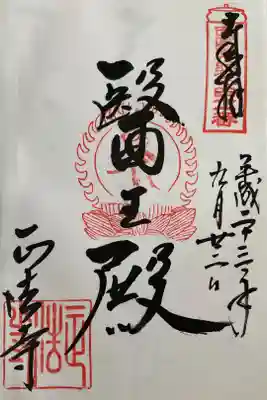 奉拝
平成二十三年
九月廿二日
醫王殿
正法寺
正法寺